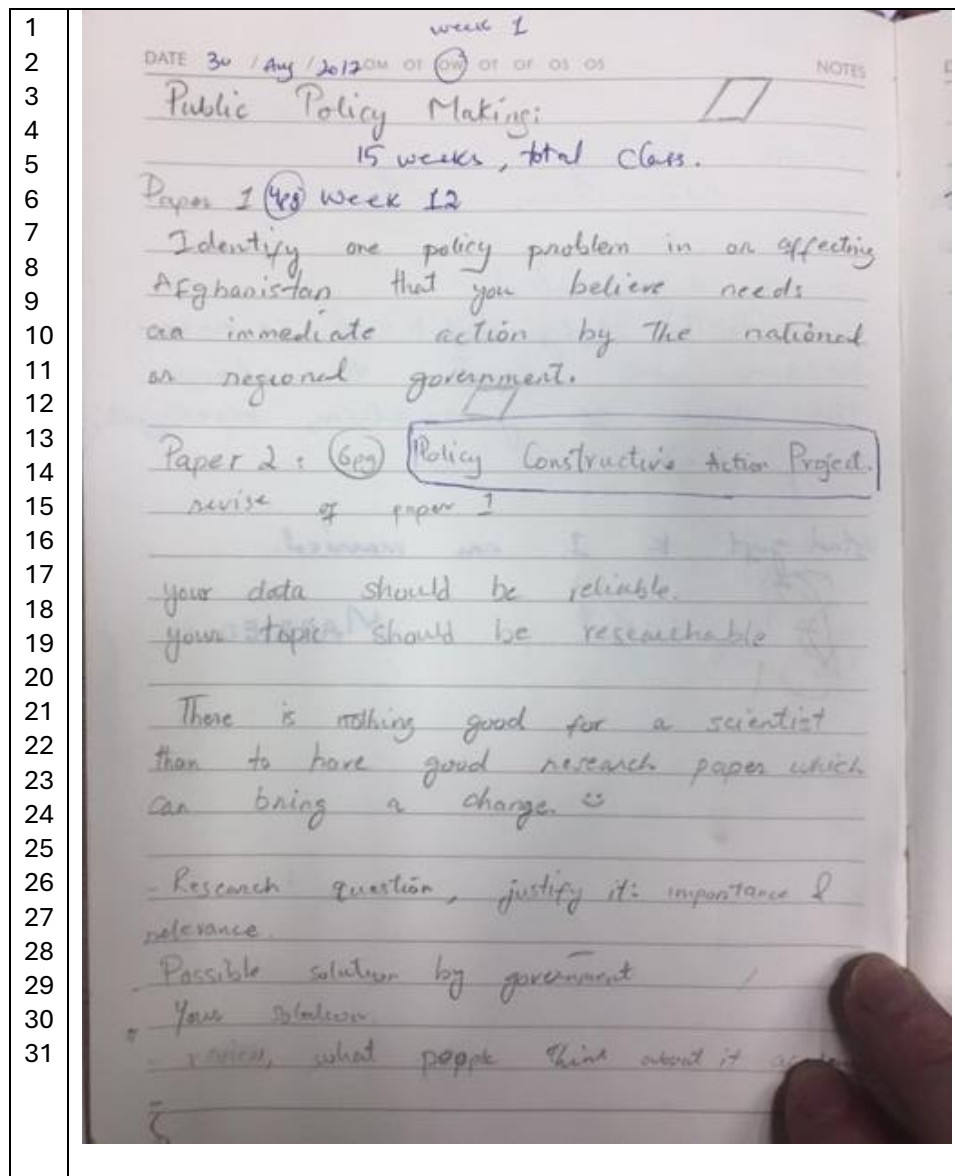 1
2
3
4
5
6
7
8
9
10
11
12
13
14
15
16
17
18
19
20
21
22
23
24
25
26
27
28
29
30
31
week 1
DATE 30 / Aug / 2012 OM OT OW OT OF OS OS NOTES
Public Policy Making:
15 weeks, total class.
Paper 1 4pg week 12
Identify one policy problem in or affecting
Afghanistan that you believe needs
an immediate action by The national
or regional government.
Paper 2 : 6pg Policy Constructive Action Project.
revise of paper 1
your data should be reliable.
your topic should be researchable
There is nothing good for a scientist
than to have good research paper which
can bring a change. ☺
- Research question, justify it: importance &
relevance.
- Possible solution by government
- Your
- review, what people think about it